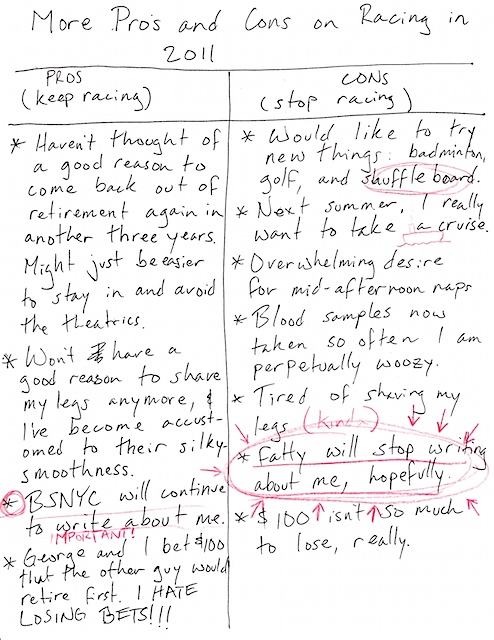 More Pro's and Cons on Racing in
2011
PROS
(keep racing)
* Haven't thought of
a good reason to
come back out of
retirement again in
another three years.
Might just be easier
to stay in and avoid
the theatrics.
* Won't have a
good reason to shave
my legs anymore, &
I've become accust-
omed to their silky-
smoothness.
* BSNYC will continue
to write about me.
IMPORTANT!
* George and I bet $100
that the other guy would
retire first. I HATE
LOSING BETS!!!
CONS
(stop racing)
* Would like to try
new things: badminton,
golf, and shuffleboard.
* Next summer, I really
want to take a cruise.
* Overwhelming desire
for mid-afternoon naps
* Blood samples now
taken so often I am
perpetually woozy.
* Tired of shaving my
legs (kinda)
* Fatty will stop writing
about me, hopefully.
* $100 isn't so much
to lose, really.